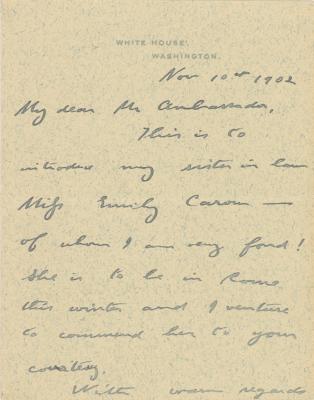 WHITE HOUSE,
WASHINGTON.
Nov 10th 1902
My dear Mr Ambassador,
This is to
introduce my sister in law
Miss Emily Carow —
of whom I am very fond!
She is to be in Rome
this winter and I venture
to commend her to your
courtesy.
With warm regards